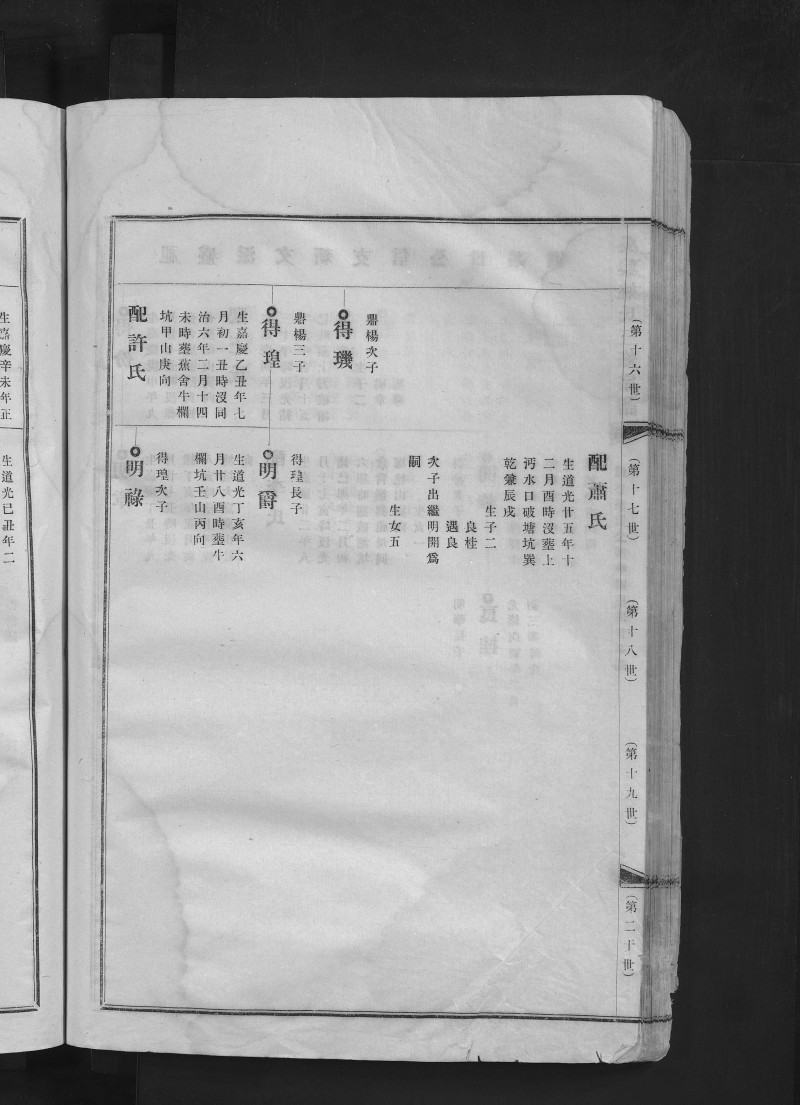 （第十六世）
（第十七世）
（第十八世）
（第十九世）
（第二十世）
鼎楊次子
得璣
鼎楊三子
得瑝
生嘉慶乙丑年七
月初一丑時沒同
治六年二月十四
未時塟蕉舍牛欄
坑甲山庚向
配許氏
配蕭氏
生道光廿五年十
二月酉時沒塟上
沔水口破塘坑巽
乾兼辰戌
生子二
良桂
遇良
次子出繼明開爲
嗣
生女五
得瑝長子
明爵
生道光丁亥年六
月廿八酉時塟牛
欄坑壬山丙向
得瑝次子
明祿
生嘉慶辛未年正
生道光已丑年二